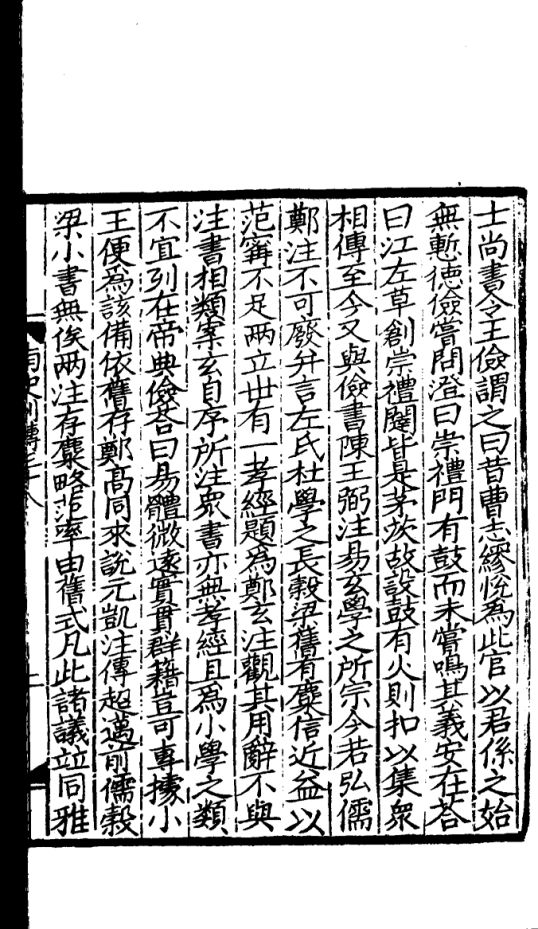 士尚書令王儉謂之曰昔曹志繆悅為此官以君係之始
無慙德儉嘗問澄曰崇禮門有鼓而未嘗鳴其義安在荅
曰江左草創崇禮闥皆是茅茨故設鼓有火則扣以集衆
相傳至今又與儉書陳王弼注易玄學之所宗今若弘儒
鄭注不可廢并言左氏杜學之長穀梁舊有麋信近益以
范甯不足两立世有一孝經題為鄭玄注觀其用辭不與
注書相類案玄自序所注衆書亦無孝經且為小學之類
不宜列在帝典儉荅曰易體微遠實貫群籍豈可專據小
王便為該備依舊存鄭高同來説元凱注傳超邁前儒穀
梁小書無俟两注存麋略范率由舊式凡此諸議竝同雅
南史列傳三十八